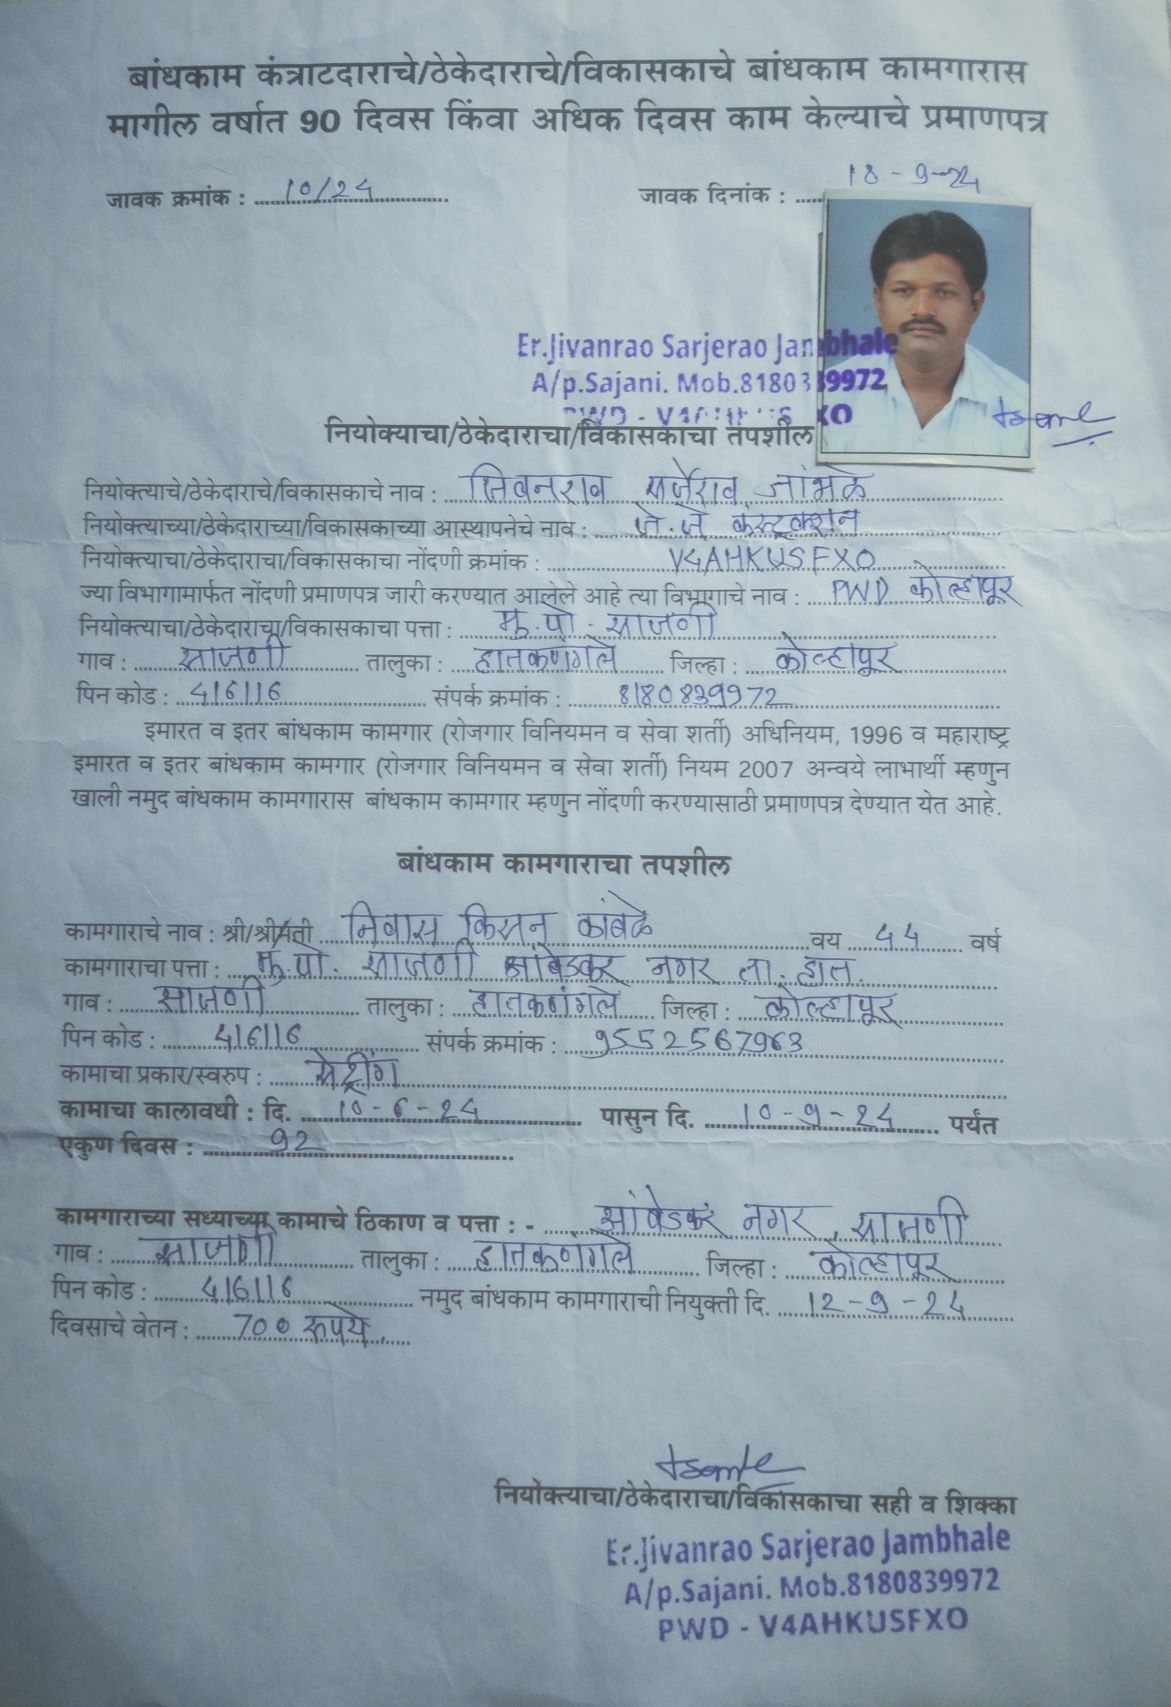 बांधकाम कंत्राटदाराचे/ठेकेदाराचे/विकासकाचे बांधकाम कामगारास
मागील वर्षात 90 दिवस किंवा अधिक दिवस काम केल्याचे प्रमाणपत्र
जावक क्रमांक : 10/24 जावक दिनांक : 18-9-24
Er.Jivanrao Sarjerao Jambhale
A/p.Sajani. Mob.8180839972
PWD - V4AHKUSFXO
नियोक्याचा/ठेकेदाराचा/विकासकाचा तपशील
नियोक्त्याचे/ठेकेदाराचे/विकासकाचे नाव : जिवनराव सर्जेराव जांभळे
नियोक्त्याच्या/ठेकेदाराच्या/विकासकाच्या आस्थापनेचे नाव : जे.जे कंस्ट्रक्शन
नियोक्त्याचा/ठेकेदाराचा/विकासकाचा नोंदणी क्रमांक : V4AHKUSFXO
ज्या विभागामार्फत नोंदणी प्रमाणपत्र जारी करण्यात आलेले आहे त्या विभागाचे नाव : PWD कोल्हापूर
नियोक्त्याचा/ठेकेदाराचा/विकासकाचा पत्ता : मु.पो. साजणी
गाव : साजणी तालुका : हातकणंगले जिल्हा : कोल्हापूर
पिन कोड : 416116 संपर्क क्रमांक : 8180839972
इमारत व इतर बांधकाम कामगार (रोजगार विनियमन व सेवा शर्ती) अधिनियम, 1996 व महाराष्ट्र
इमारत व इतर बांधकाम कामगार (रोजगार विनियमन व सेवा शर्ती) नियम 2007 अन्वये लाभार्थी म्हणुन
खाली नमुद बांधकाम कामगारास बांधकाम कामगार म्हणुन नोंदणी करण्यासाठी प्रमाणपत्र देण्यात येत आहे.
बांधकाम कामगाराचा तपशील
कामगाराचे नाव : श्री/श्रीमती निवास किसन कांबळे वय 44 वर्ष
कामगाराचा पत्ता : मु.पो. साजणी आंबेडकर नगर ता. हात.
गाव : साजणी तालुका : हातकणंगले जिल्हा : कोल्हापूर
पिन कोड : 416116 संपर्क क्रमांक : 9552567963
कामाचा प्रकार/स्वरुप : सेंट्रींग
कामाचा कालावधी : दि. 10-6-24 पासुन दि. 10-9-24 पर्यंत
एकुण दिवस : 92
कामगाराच्या सध्याच्या कामाचे ठिकाण व पत्ता : - आंबेडकर नगर, साजणी
गाव : साजणी तालुका : हातकणंगले जिल्हा : कोल्हापूर
पिन कोड : 416116 नमुद बांधकाम कामगाराची नियुक्ती दि. 12-9-24
दिवसाचे वेतन : 700 रुपये.
नियोक्त्याचा/ठेकेदाराचा/विकासकाचा सही व शिक्का
Er.Jivanrao Sarjerao Jambhale
A/p.Sajani. Mob.8180839972
PWD - V4AHKUSFXO